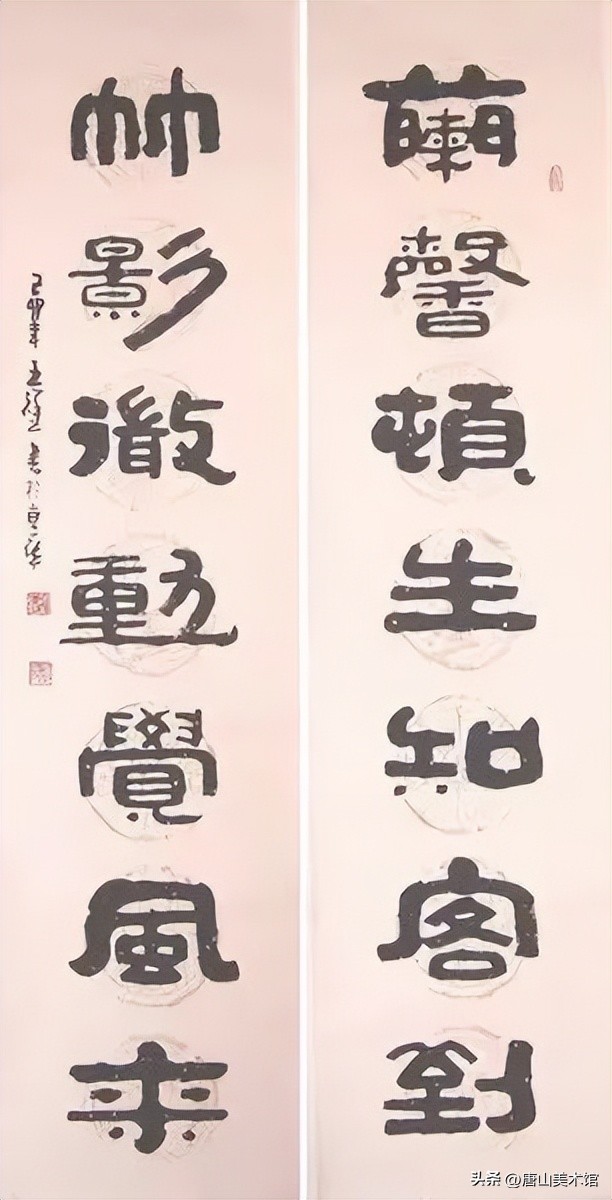 蘭馨頓生知客到
竹影微動覺風来
己卯年王書於京華
头条 @唐山美术馆